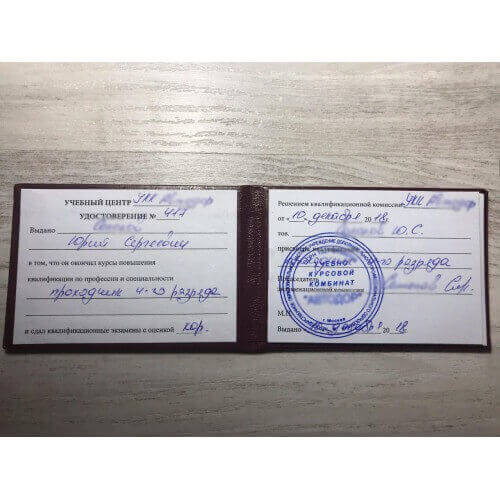 УЧЕБНЫЙ ЦЕНТР УКК
УДОСТОВЕРЕНИЕ № 417
Выдано
Юрий Сергеевич
в том, что он окончил курсы повышения
квалификации по профессии и специальности
проходчик 4-го разряда
и сдал квалификационные экзамены с оценкой хор.
Решением квалификационной комиссии УКК
от «10» декабря 2018 г.
тов. Ю.С.
разряда
Председатель
квалификационной комиссии
М.П.
Выдано 2018
УЧЕБНО
КУРСОВОЙ
КОМБИНАТ
"АВТОДОР"
г. Москва